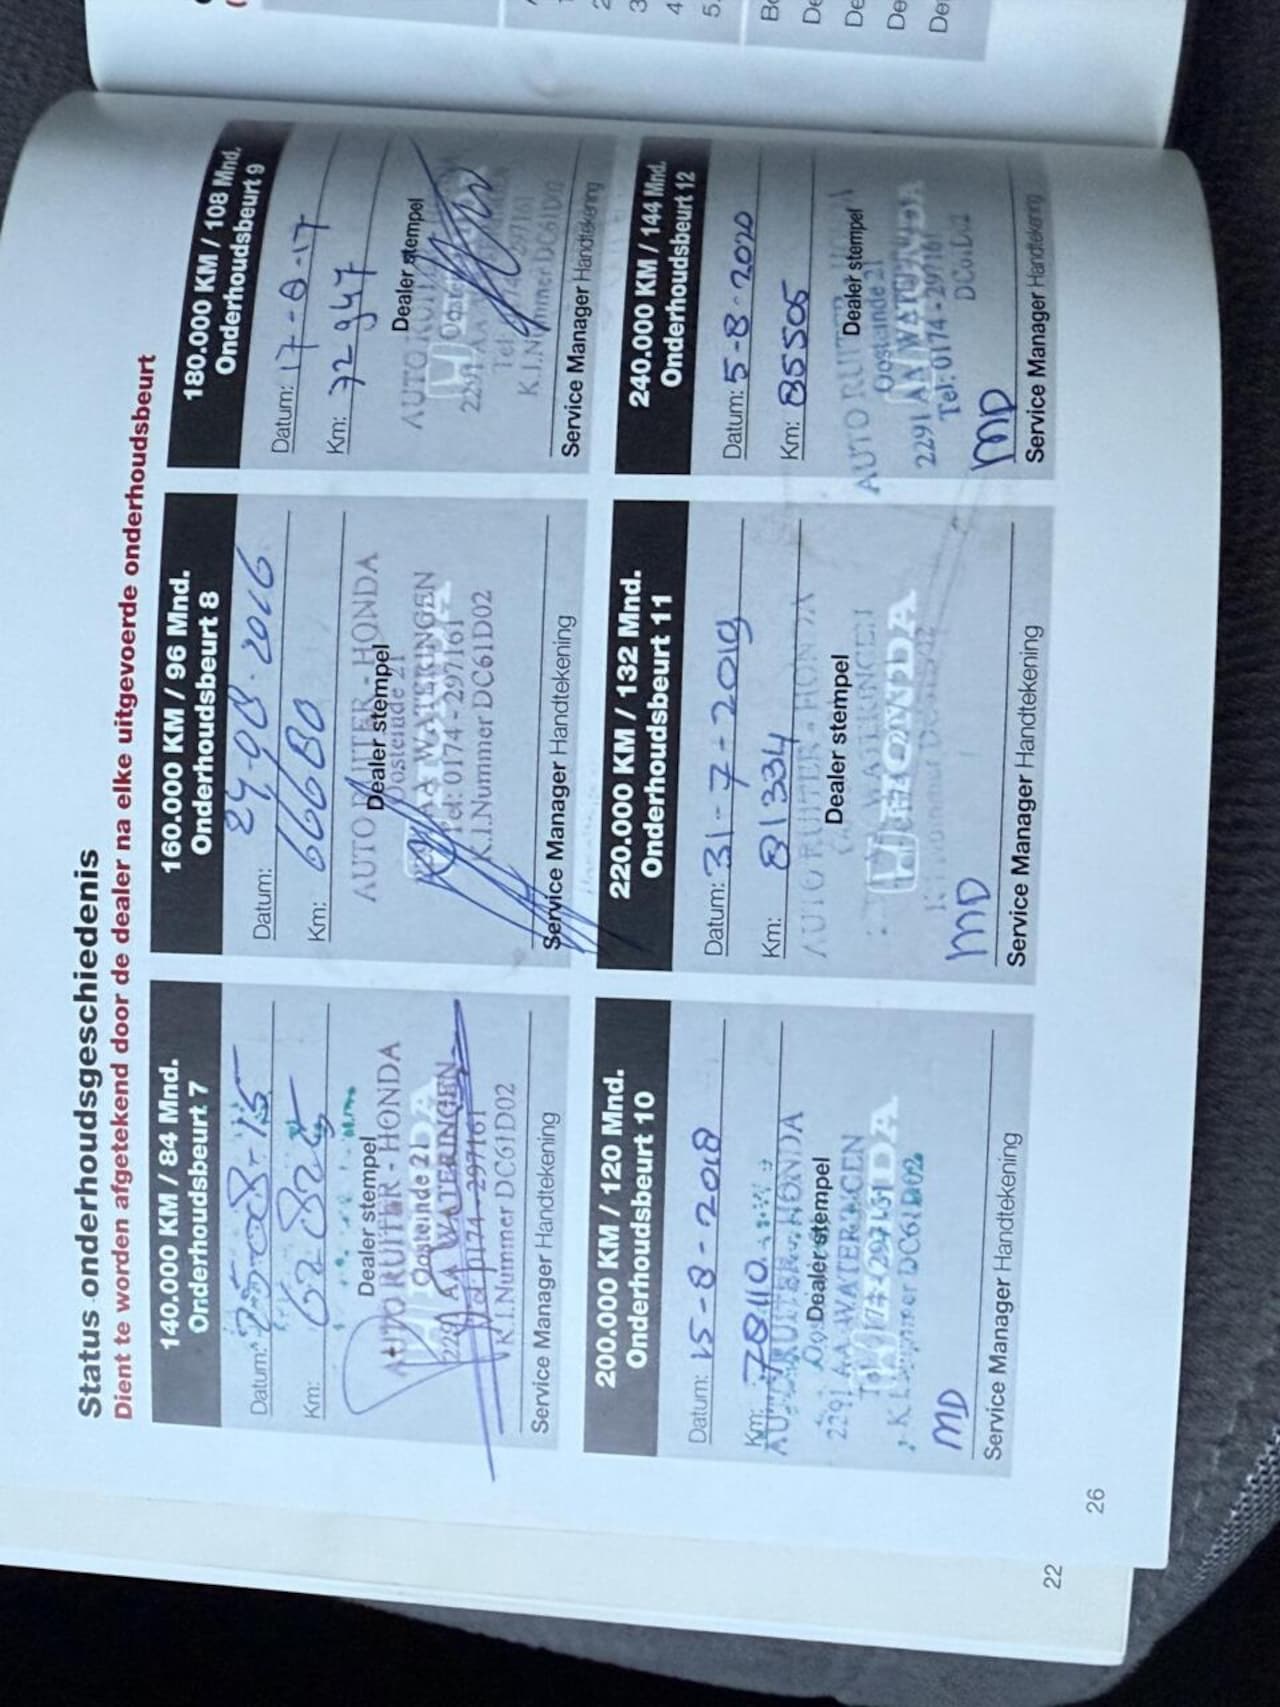 Status onderhoudsgeschiedenis
Dient te worden afgetekend door de dealer na elke uitgevoerde onderhoudsbeurt
140.000 KM / 84 Mnd.
Onderhoudsbeurt 7
Datum: 25-08-15
Km: 62824
Dealer stempel
AUTO RUITER - HONDA
Oosteinde 21
2291 AA WATERINGEN
Tel: 0174 - 297161
K.I.Nummer DC61D02
Service Manager Handtekening
160.000 KM / 96 Mnd.
Onderhoudsbeurt 8
Datum: 24-08-2016
Km: 66680
Dealer stempel
AUTO RUITER - HONDA
Oosteinde 21
AA WATERINGEN
HONDA
Tel: 0174 - 297161
K.I.Nummer DC61D02
Service Manager Handtekening
180.000 KM / 108 Mnd.
Onderhoudsbeurt 9
Datum: 17-8-17
Km: 72947
Dealer stempel
AUTO RUITER
2291 AA
Tel: 297161
K.I.Nummer DC61D02
Service Manager Handtekening
200.000 KM / 120 Mnd.
Onderhoudsbeurt 10
Datum: 15-8-2018
Km: 78110
AUTO RUITER - HONDA
Dealer stempel
2291 AA WATERINGEN
HONDA
K.I.Nummer DC61D02
MD
Service Manager Handtekening
220.000 KM / 132 Mnd.
Onderhoudsbeurt 11
Datum: 31-7-2019
Km: 81334
AUTO RUITER - HONDA
Dealer stempel
WATERINGEN
HONDA
MD
Service Manager Handtekening
240.000 KM / 144 Mnd.
Onderhoudsbeurt 12
Datum: 5-8-2020
Km: 85505
Dealer stempel
AUTO RUITER
Oosteinde 21
2291 AA WATERINGEN
Tel: 0174 - 297161
MD
Service Manager Handtekening
26
22